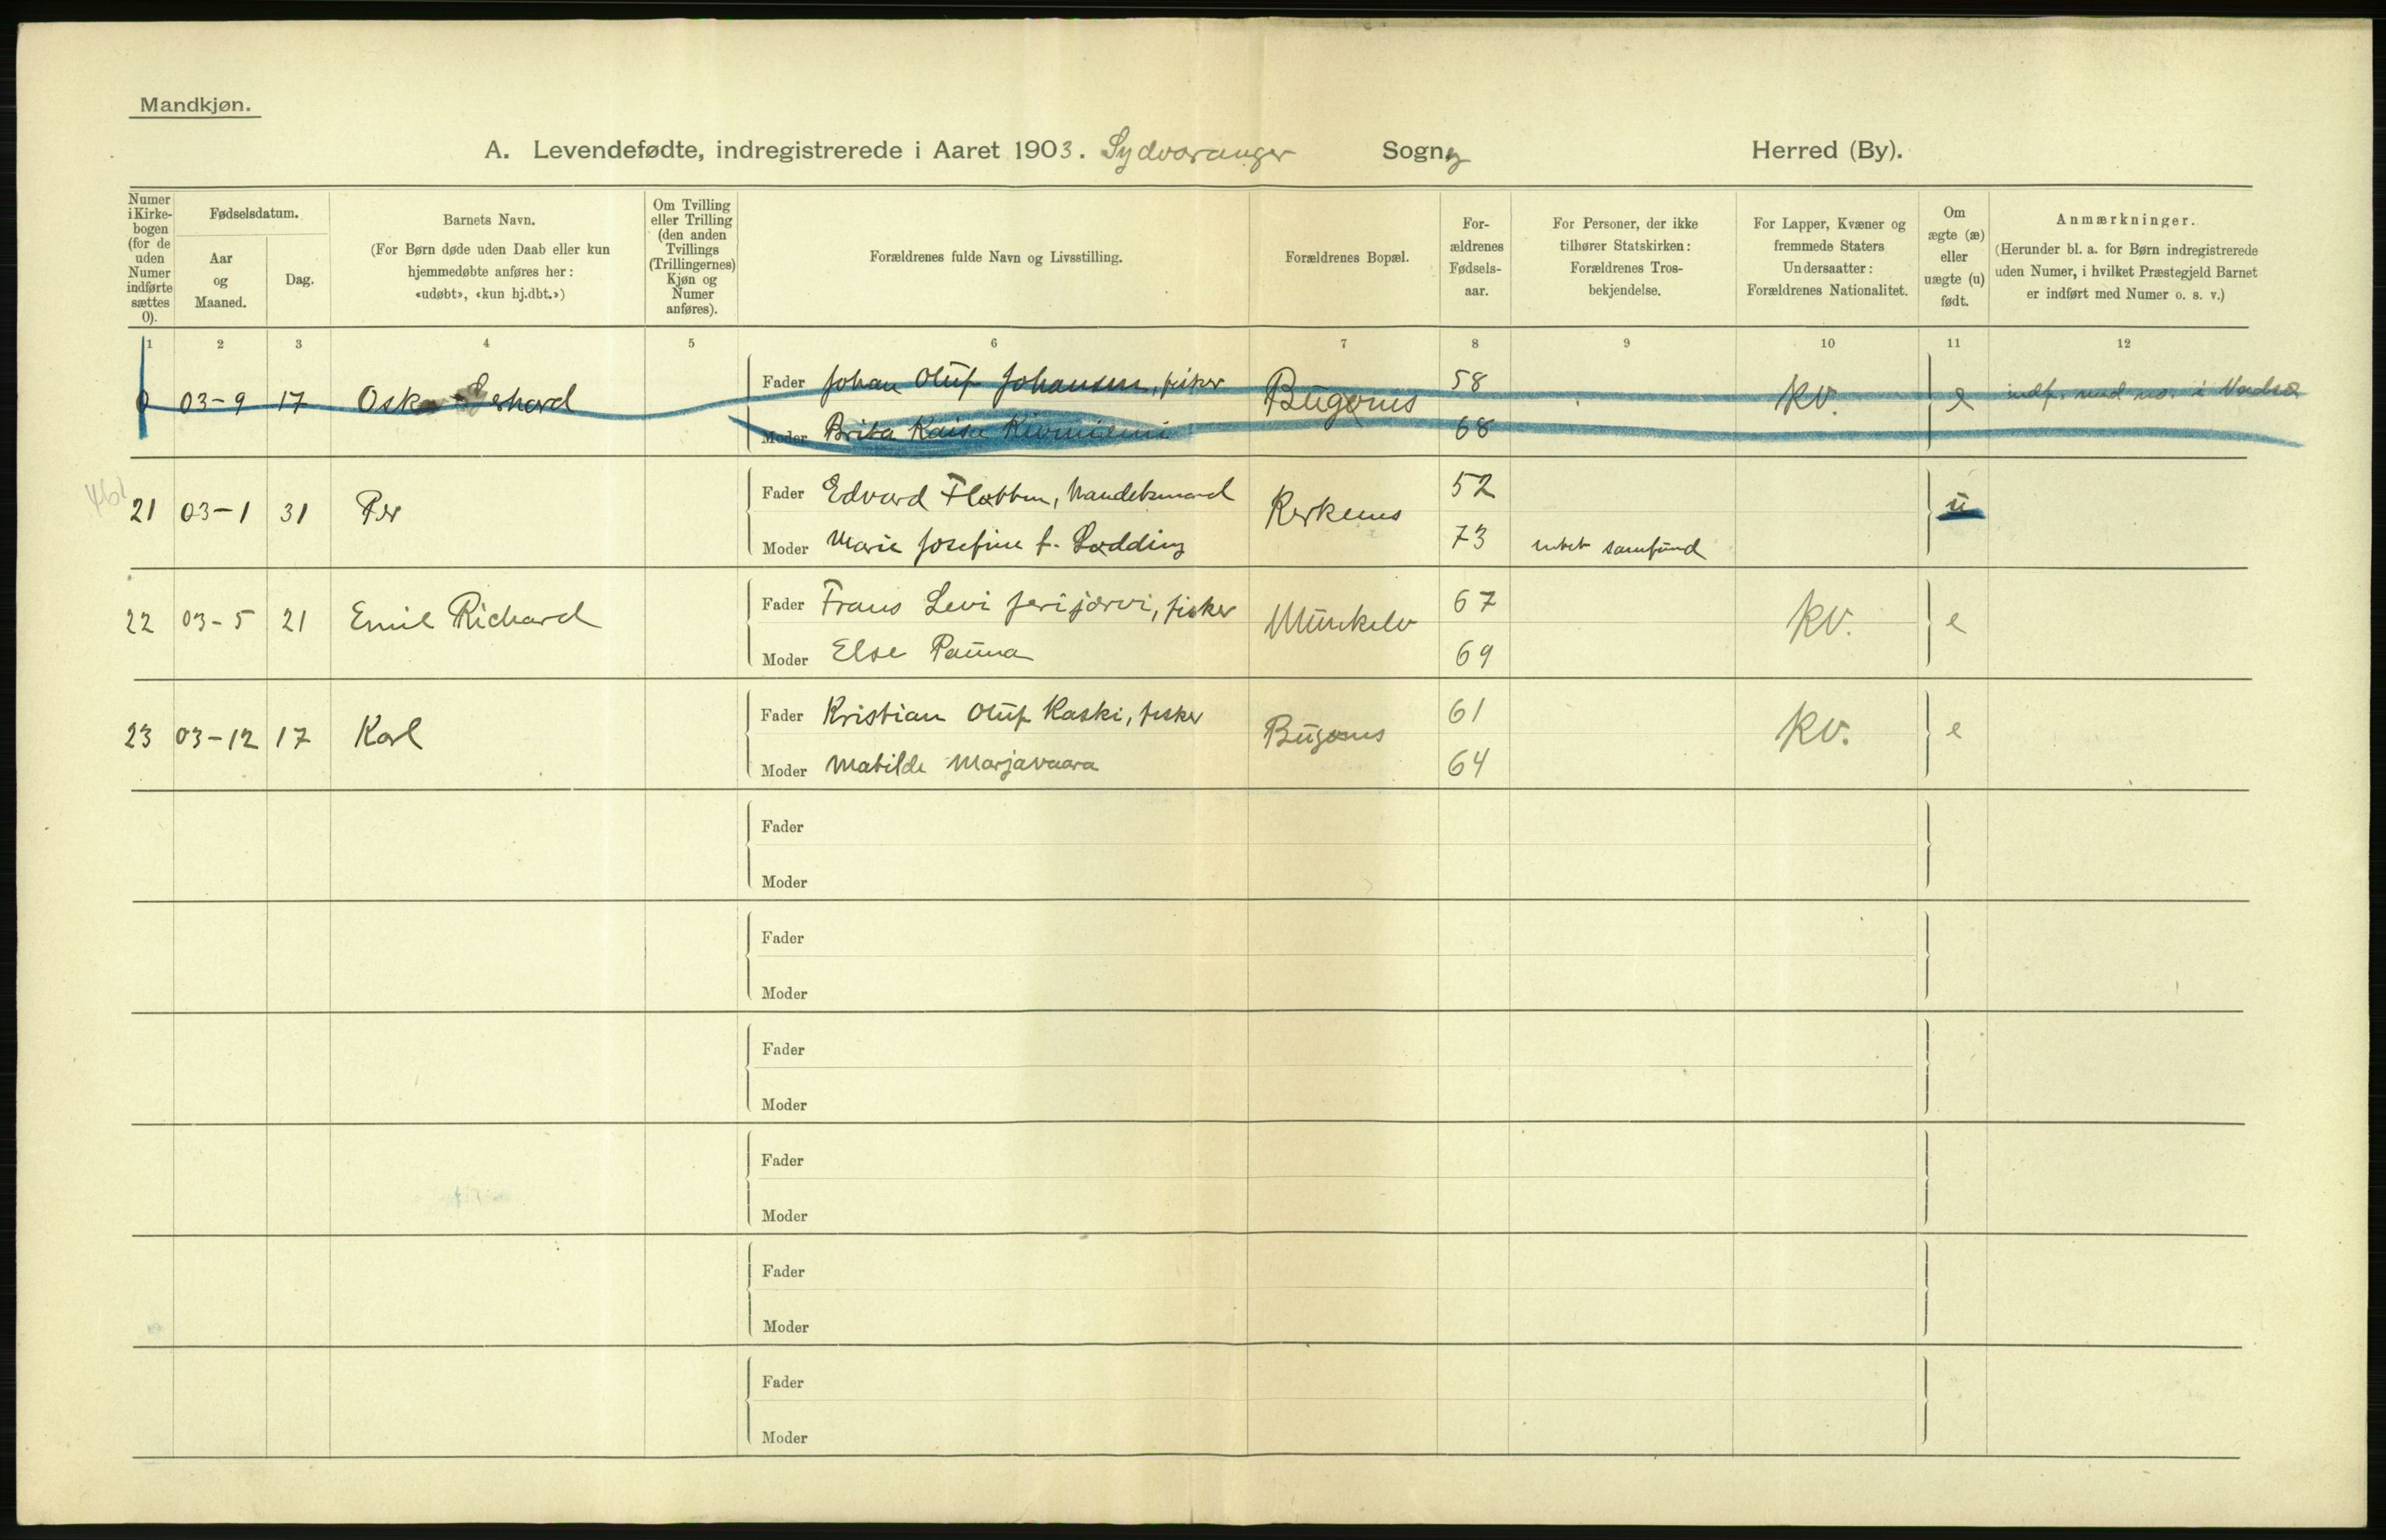 Mandkjøn.
A. Levendefødte, indregistrerede i Aaret 1903. Sydvaranger Sogn og Herred (By).
Numer i Kirke- bogen (for de uden Numer indførte sættes 0).
Fødselsdatum.
Aar og Maaned.
Dag.
Barnets Navn.
(For Børn døde uden Daab eller kun
hjemmedøbte anføres her:
«udøbt», «kun hj.dbt.»)
Om Tvilling
eller Trilling
(den anden
Tvillings
(Trillingernes)
Kjøn og
Numer
anføres).
Forældrenes fulde Navn og Livsstilling.
Forældrenes Bopæl.
For-
ældrenes
Fødsels-
aar.
For Personer, der ikke
tilhører Statskirken:
Forældrenes Tros-
bekjendelse.
For Lapper, Kvæner og
fremmede Staters
Undersaatter:
Forældrenes Nationalitet.
Om
ægte (æ)
eller
uægte (u)
født.
Anmærkninger.
(Herunder bl. a. for Børn indregistrerede
uden Numer, i hvilket Præstegjeld Barnet
er indført med Numer o. s. v.)
1 2 3 4 5 6 7 8 9 10 11 12
0 03-9 17 Oskar Gerhard Fader Johan Oluf Johansen, fisker Bugønes 58 kv. e indf. med no. i Vadsø
Moder Brita Kaisa Kivniemi 68
461
21 03-1 31 Per Fader Edvard Flotten, Handelsmand Kerkenes 52 u
Moder Marie Josefine f. Lødding 73 intet samfund
22 03-5 21 Emil Richard Fader Frans Levi Jerijærvi, fisker Munkelv 67 kv. e
Moder Else Pauna 69
23 03-12 17 Karl Fader Kristian Oluf Kaski, fisker Bugønes 61 kv. e
Moder Matilde Marjavaara 64
Fader
Moder
Fader
Moder
Fader
Moder
Fader
Moder
Fader
Moder
Fader
Moder